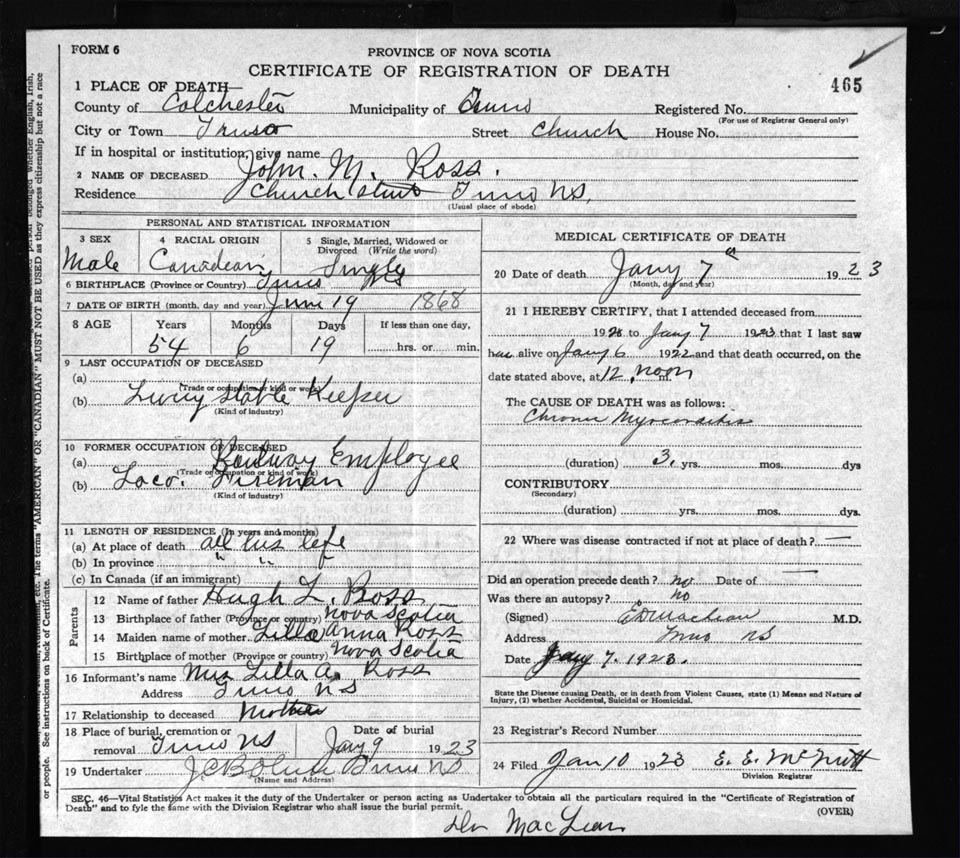 FORM 6
PROVINCE OF NOVA SCOTIA
CERTIFICATE OF REGISTRATION OF DEATH
465
1 PLACE OF DEATH—
County of Colchester Municipality of Truro Registered No.
(For use of Registrar General only)
City or Town Truro Street Church House No.
If in hospital or institution, give name
2 NAME OF DECEASED John. M. Ross.
Residence Church Street Truro NS.
(Usual place of abode)
PERSONAL AND STATISTICAL INFORMATION
3 SEX 4 RACIAL ORIGIN 5 Single, Married, Widowed or Divorced (Write the word)
Male Canadean Single
6 BIRTHPLACE (Province or Country) Truro NS
7 DATE OF BIRTH (month, day and year) June 19 1868
8 AGE Years Months Days If less than one day,
54 6 19 hrs. or min.
9 LAST OCCUPATION OF DECEASED
(a)
(Trade or occupation or kind of work)
(b) Livery Stable Keeper
(Kind of industry)
10 FORMER OCCUPATION OF DECEASED
(a) Railway Employee
(Trade or occupation or kind of work)
(b) Loco. Fireman
(Kind of industry)
11 LENGTH OF RESIDENCE (In years and months)
(a) At place of death all his life
(b) In province " " "
(c) In Canada (if an immigrant)
Parents
12 Name of father Hugh L. Ross
13 Birthplace of father (Province or country) Nova Scotia
14 Maiden name of mother Lilla Anna Ross
15 Birthplace of mother (Province or country) Nova Scotia
16 Informant's name Mrs Lilla A. Ross
Address Truro NS
17 Relationship to deceased Mother
18 Place of burial, cremation or removal Truro NS Date of burial Jany 9 1923
19 Undertaker Truro NS
(Name and Address)
MEDICAL CERTIFICATE OF DEATH
20 Date of death Jany 7th 1923
(Month, day and year)
21 I HEREBY CERTIFY, that I attended deceased from
19 to Jany 7 1923 that I last saw
him alive on Jany 6 1922 and that death occurred, on the
date stated above, at 12, noon m.
The CAUSE OF DEATH was as follows:
Chronic Myocarditis
(duration) 3, yrs. mos. dys
CONTRIBUTORY
(Secondary)
(duration) yrs. mos. dys.
22 Where was disease contracted if not at place of death? —
Did an operation precede death? no Date of —
Was there an autopsy? no
(Signed) M.D.
Address Truro NS
Date Jany 7. 1923.
State the Disease causing Death, or in death from Violent Causes, state (1) Means and Nature of
Injury, (2) whether Accidental, Suicidal or Homicidal.
23 Registrar's Record Number
24 Filed Jan 10 1923 E. E. McNutt
Division Registrar
SEC. 46—Vital Statistics Act makes it the duty of the Undertaker or person acting as Undertaker to obtain all the particulars required in the "Certificate of Registration of
Death" and to fyle the same with the Division Registrar who shall issue the burial permit.
(OVER)
Dr MacLean
person belonged whether English, Irish,
etc. The terms "AMERICAN" OR "CANADIAN" MUST NOT BE USED as they express citizenship but not a race
or people. See instructions on back of Certificate.